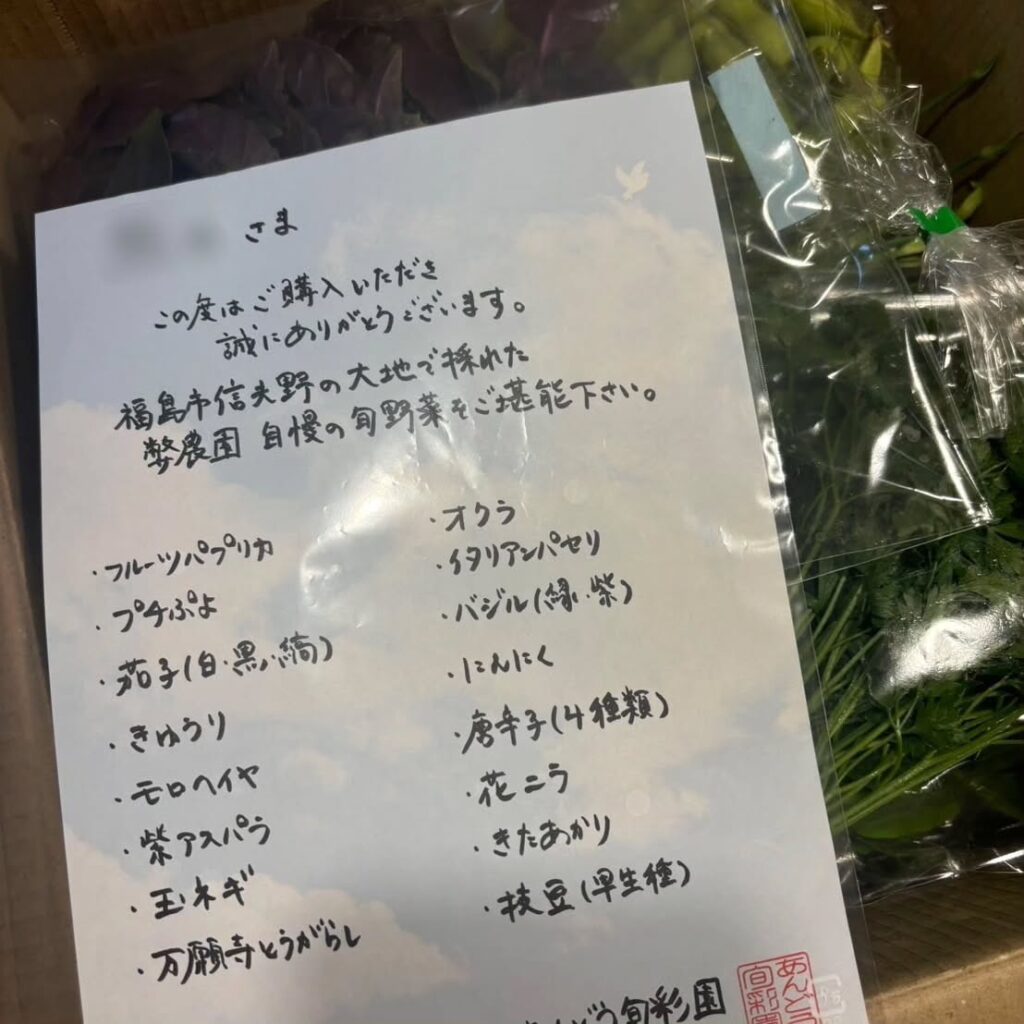 さま
この度はご購入いただき
誠にありがとうございます。
福島市信夫野の大地で採れた
弊農園 自慢の旬野菜をご堪能下さい。
・フルーツパプリカ
・プチぷよ
・茄子(白・黒・縞)
・きゅうり
・モロヘイヤ
・紫アスパラ
・玉ネギ
・万願寺とうがらし
・オクラ
・イタリアンパセリ
・バジル(緑・紫)
・にんにく
・唐辛子(4種類)
・花ニラ
・きたあかり
・枝豆(早生種)
んどう旬彩園
あんどう
旬彩園